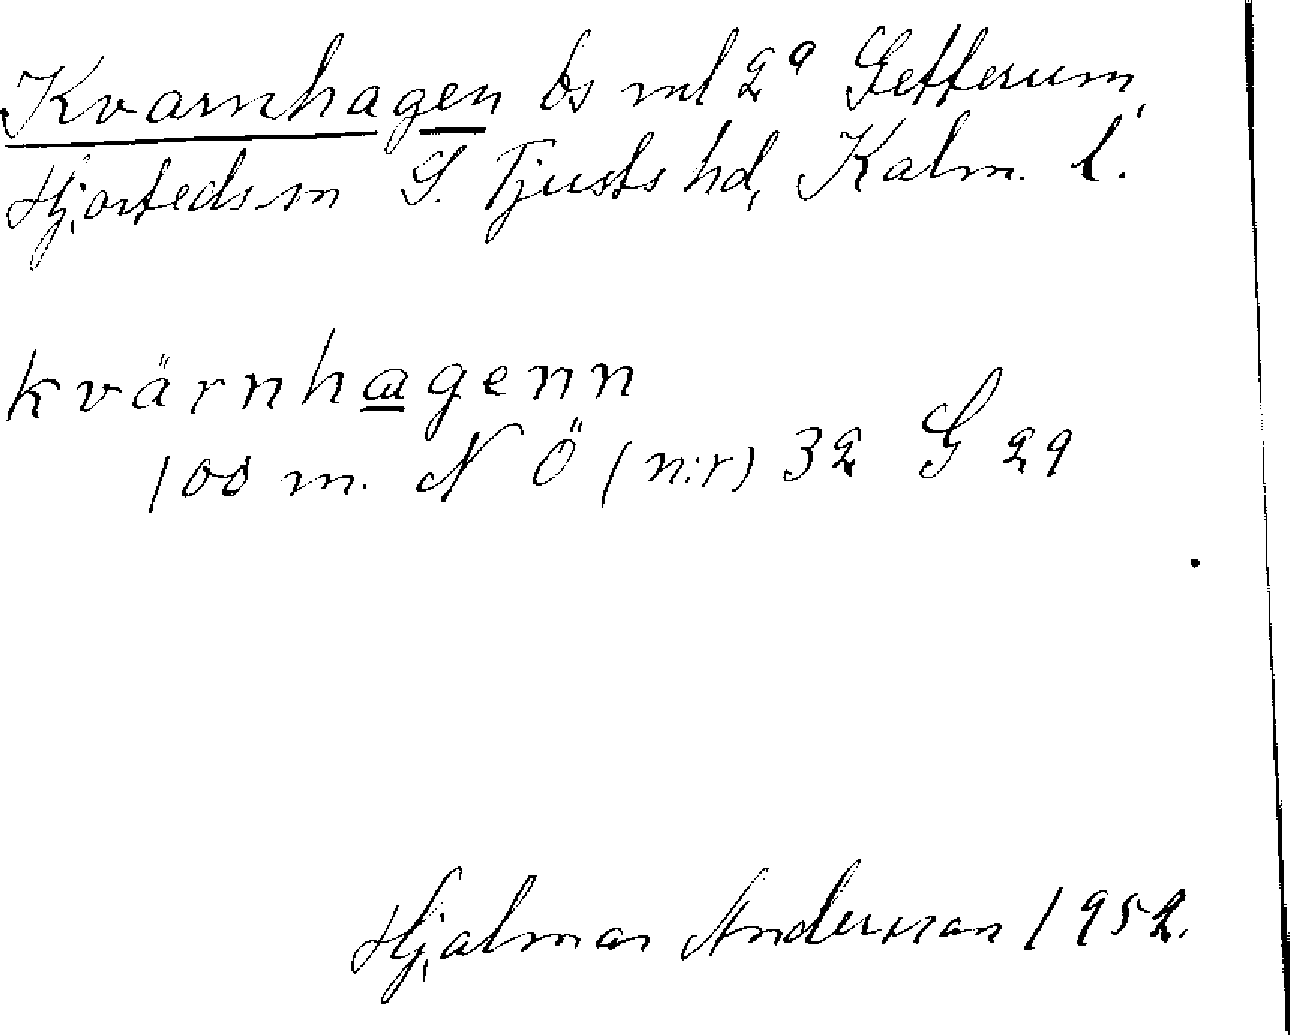 Kvarnhagen bs ml 2ᵃ Getterum,
Hjorteds sn S. Tjusts hd, Kalm. l.
kvärnhagenn
100 m. N Ö (n:r) 32 G 29
Hjalmar Andersson 1952.